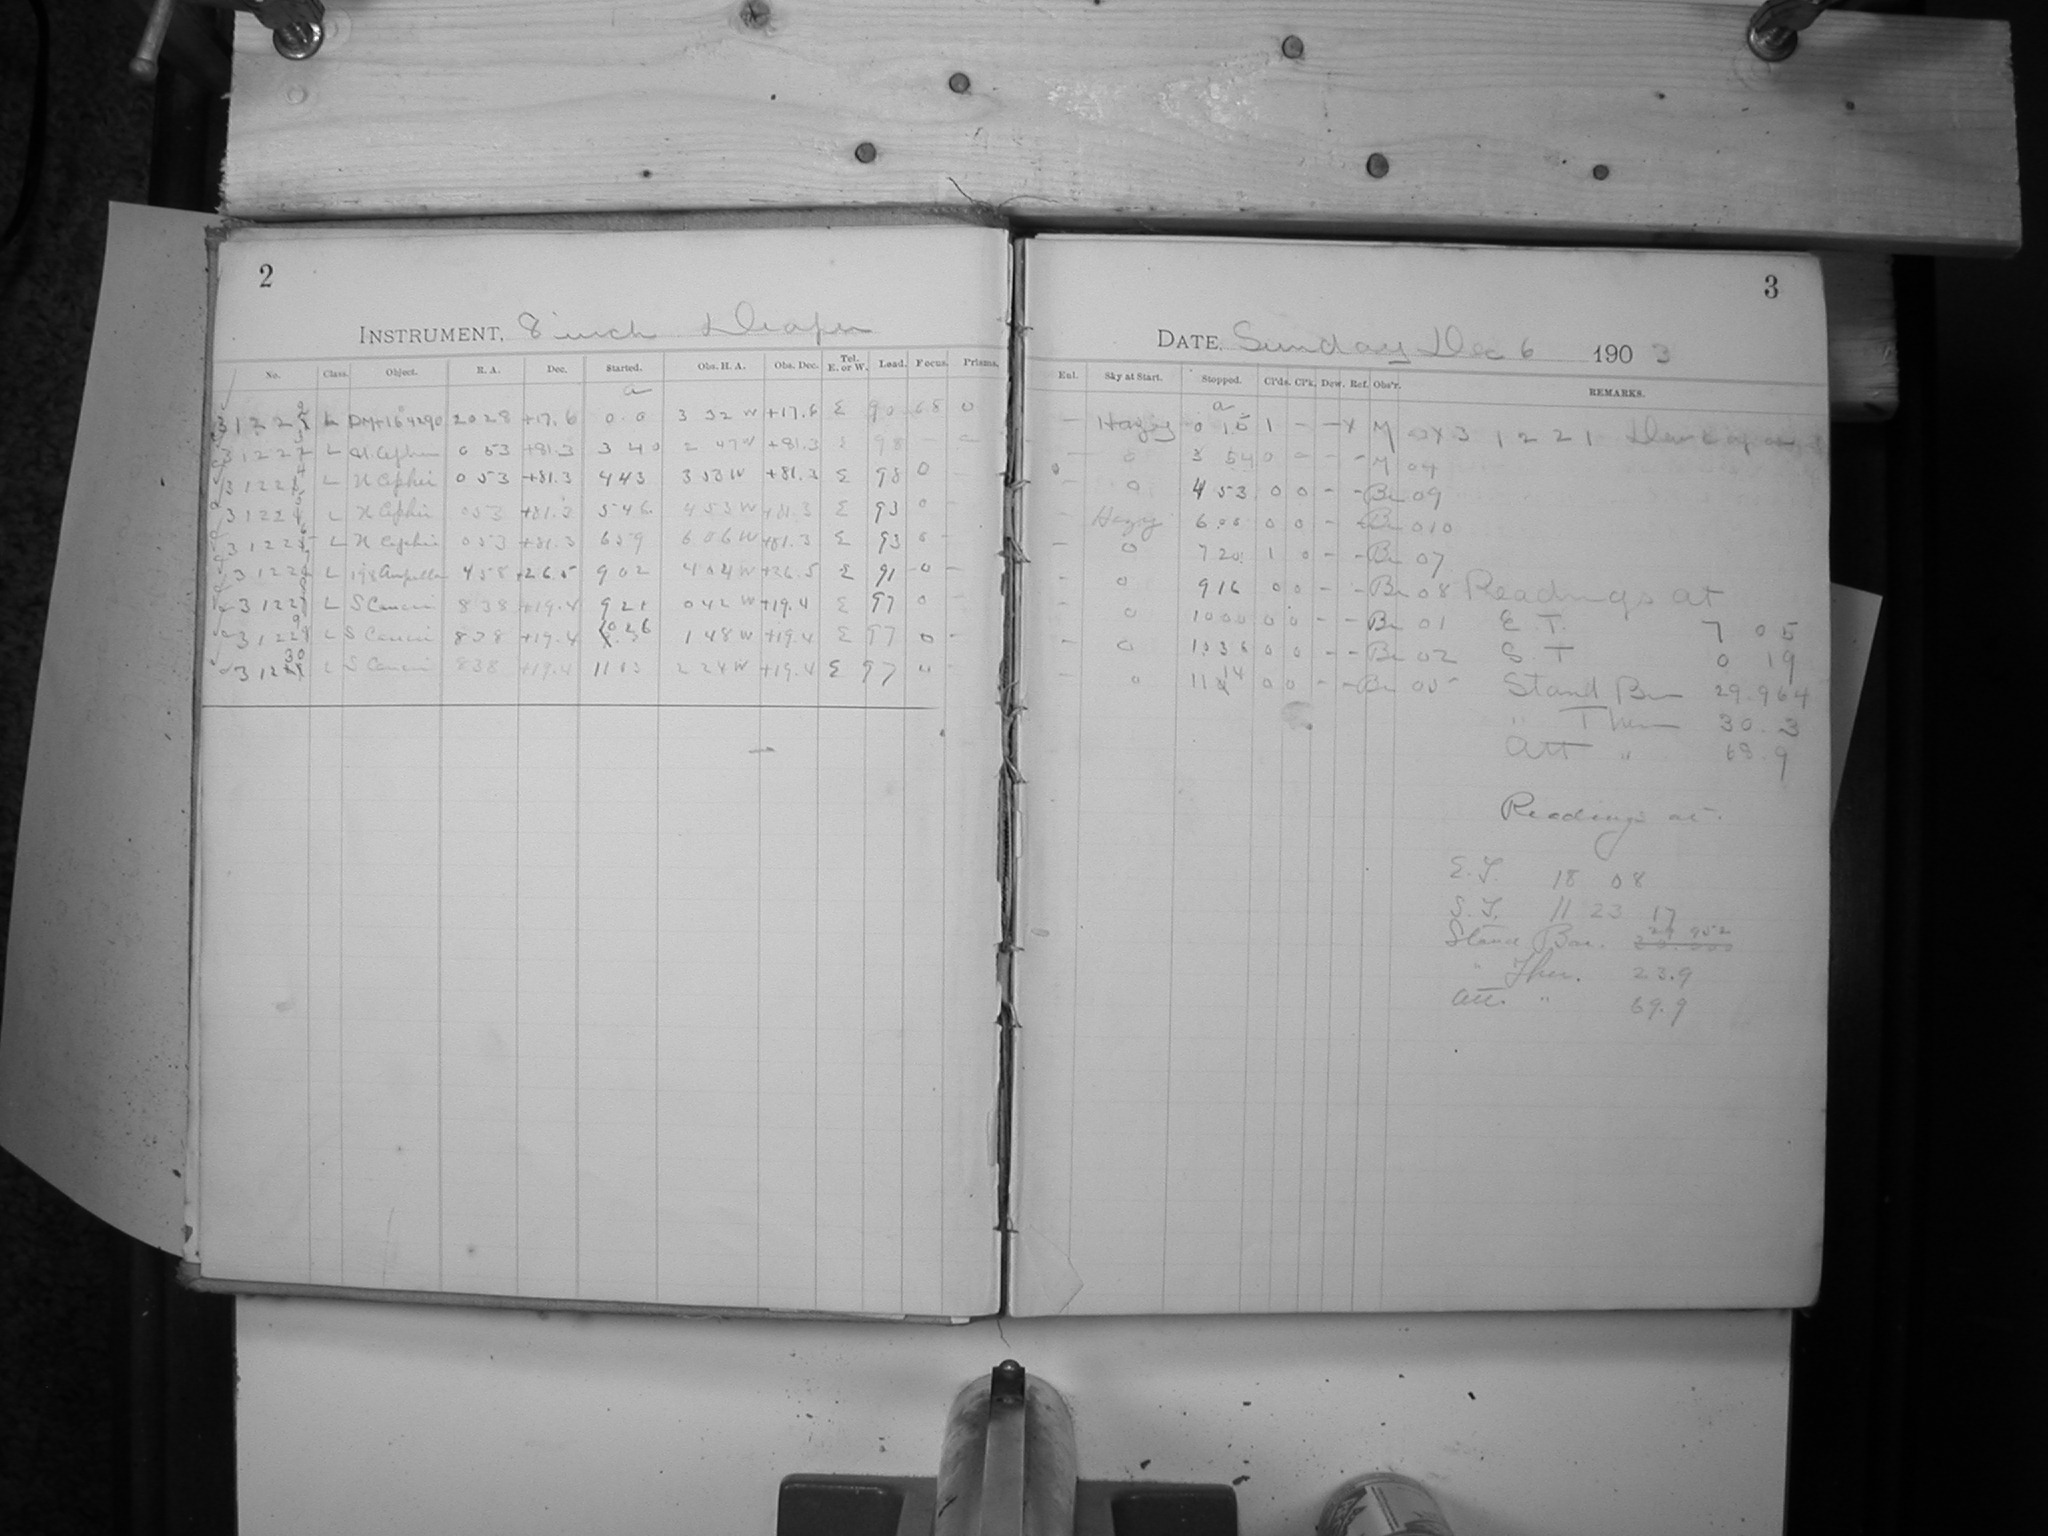 2
INSTRUMENT, 8 inch Draper
No. Class. Object. R. A. Dec. Started. Obs. H. A. Obs. Dec. Tel. E. or W. Load. Focus. Prisms.
a
31222 L DM+16°4290 20 28 +17.6 0 0 3 32 W +17.6 E 90 68 0
31223 L U Cephei 0 53 +81.3 3 40 2 47 W +81.3 E 98 - -
31224 L U Cephei 0 53 +81.3 4 43 3 53 W +81.3 E 98 0 -
31225 L U Cephei 0 53 +81.3 5 46 4 53 W +81.3 E 93 0 -
31226 L U Cephei 0 53 +81.3 6 59 6 06 W +81.3 E 93 0 -
3122 L 4 58 +26.5 9 02 4 04 W +26.5 E 91 0 -
3122 L S Cancri 8 38 +19.4 9 21 0 42 W +19.4 E 97 0 -
31229 L S Cancri 8 38 +19.4 10 26 1 48 W +19.4 E 97 0 -
31230 L S Cancri 8 38 +19.4 11 03 2 24 W +19.4 E 97 0 -
3
DATE, Sunday Dec 6 1903
Eul. Sky at Start. Stopped. Cl'ds. Cl'k. Dew. Ref. Obs'r. REMARKS.
a
- Hazy 0 15 1 - - X M 31221
- 0 3 54 0 0 - - M 04
- 0 4 53 0 0 - - Br 09
- Hazy 6 00 0 0 - - Br 010
- 0 7 20 1 0 - - Br 07
- 0 9 16 0 0 - - Br 08 Readings at
- 0 10 00 0 0 - - Br 01 E. T. 7 05
- 0 10 36 0 0 - - Br 02 S. T 0 19
- 0 11 14 0 0 - - Br 05 Stand Bar 29.964
" Ther 30.3
Att " 68.9
Readings at.
E.T. 18 08
S.T. 11 23 17
Stand Bar. 29 952
" Ther. 23.9
Att. " 69.9